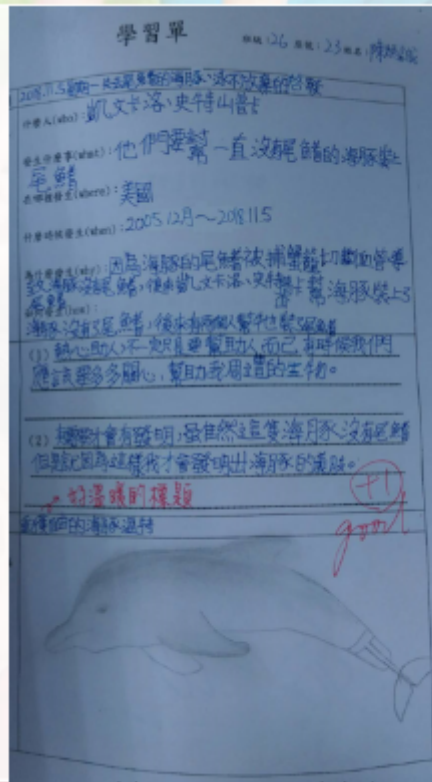 學習單
班級:26 座號:23 姓名:陳
2018.11.5星期一 失去尾鰭的海豚、永不放棄的
什麼人(who):凱文卡洛、史特山普卡
發生什麼事(what):他們要幫一直沒有尾鰭的海豚裝上
尾鰭
在哪裡發生(where):美國
什麼時候發生(when):2005 12月～2018 11 5
為什麼發生(why):因為海豚的尾鰭被捕蟹籃切斷血管導
致海豚沒尾鰭,後來凱文卡洛、史特山普卡幫海豚裝上了
尾鰭
如何發生(how):
海豚沒有了尾鰭,後來有兩個人幫牠裝了尾鰭
(1) 熱心助人,不一定只是要幫助人而已,有時候我們
應該要多多關心,幫助我周遭的生物。
(2) 有需要才會有發明,雖然這隻海豚沒有尾鰭
但是就因為這樣我才會發明出海豚的義肢。
好溫暖的標題
+1
good
的海豚溫特